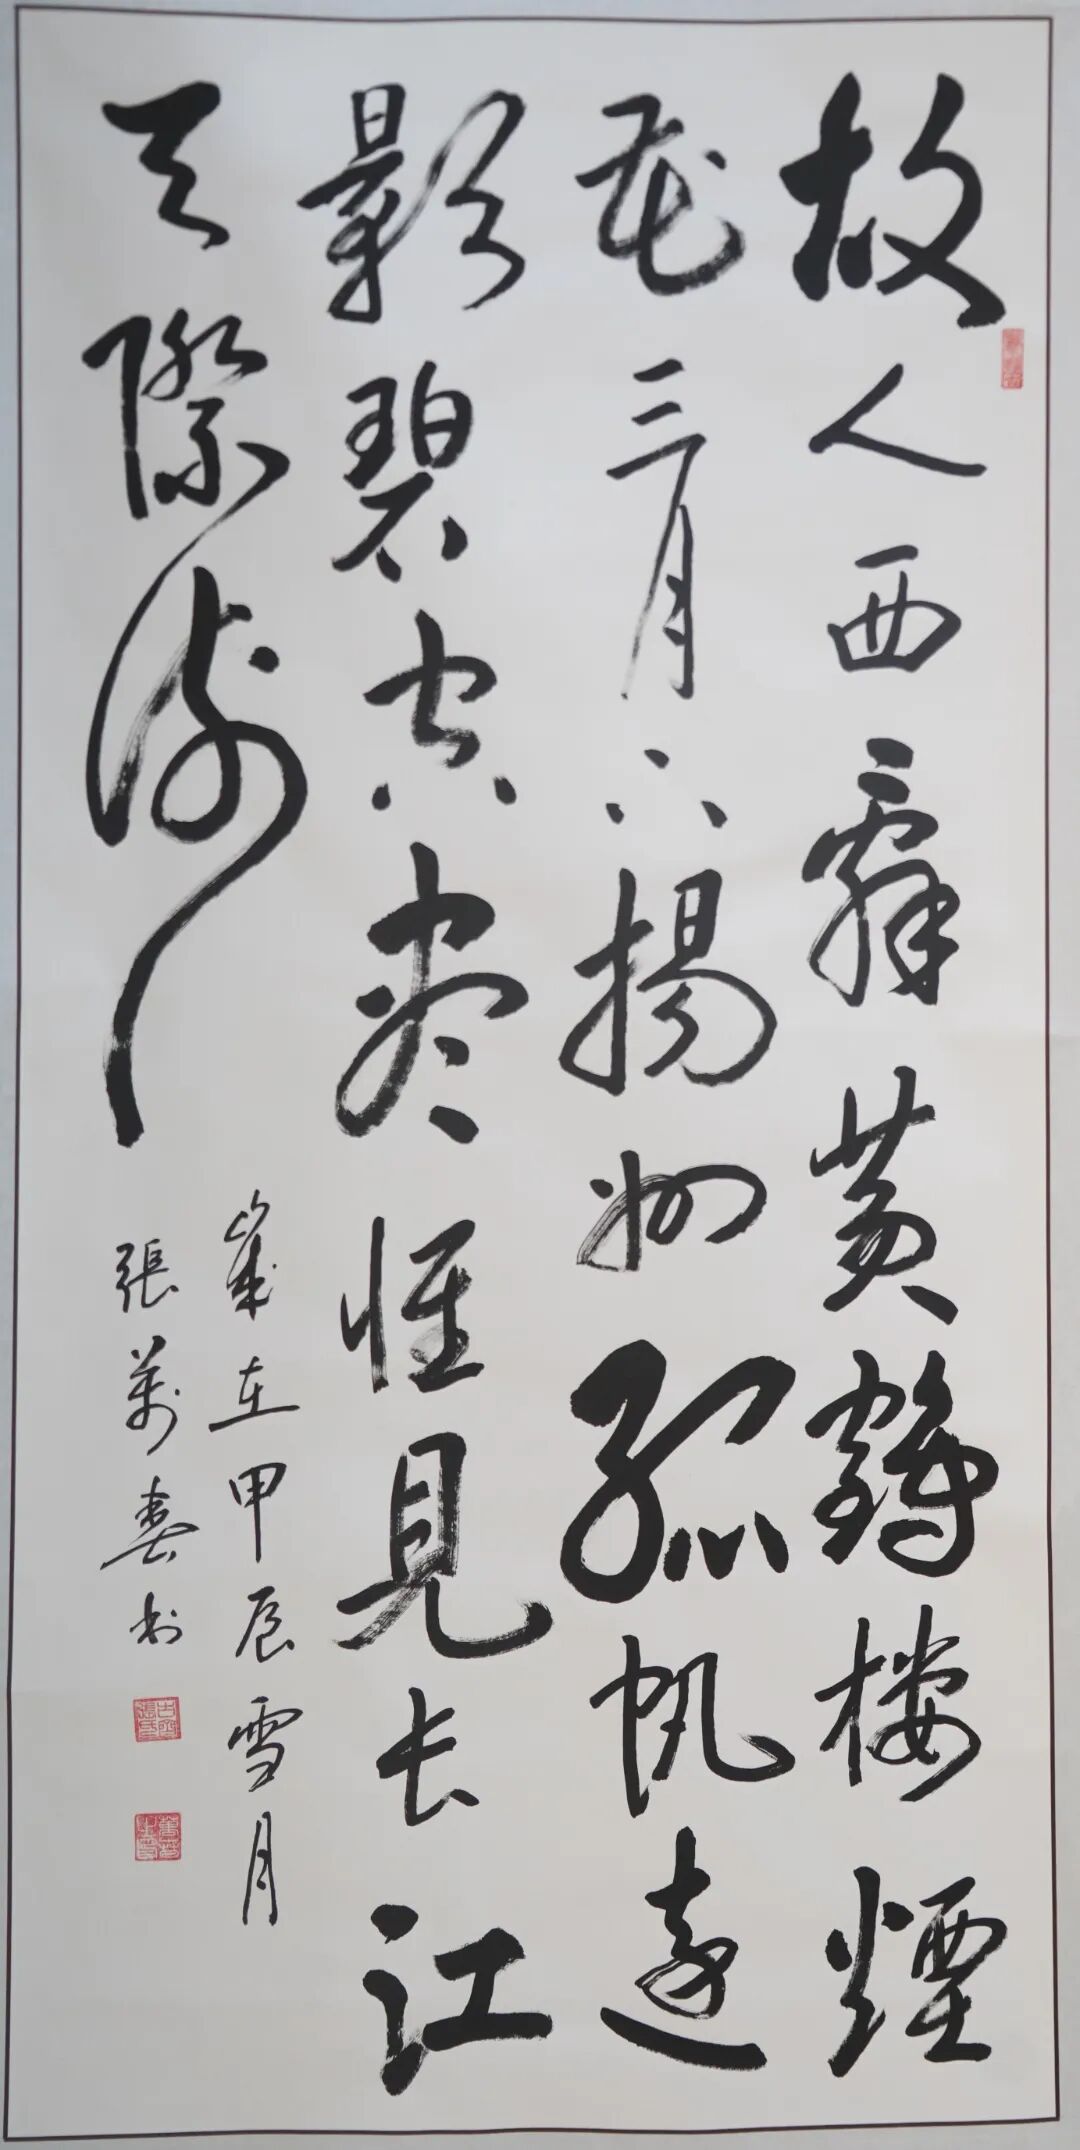 故人西辞黄鹤楼煙
花三月下揚州孤帆遠
影碧空尽惟見长江
天際流
歲在甲辰雪月
張萬春书